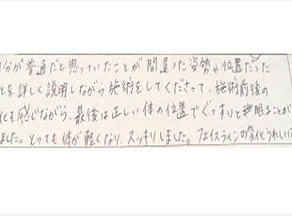 分が普通だと思っていたことが間違った姿勢や位置だった
とを詳しく説明しながら施術をしてくださって、施術前後の
化を感じながら、最後は正しい体の位置でぐっすりと眠ることが
ました。とっても体が軽くなり、スッキリしました。フェイスラインの変化うれしい